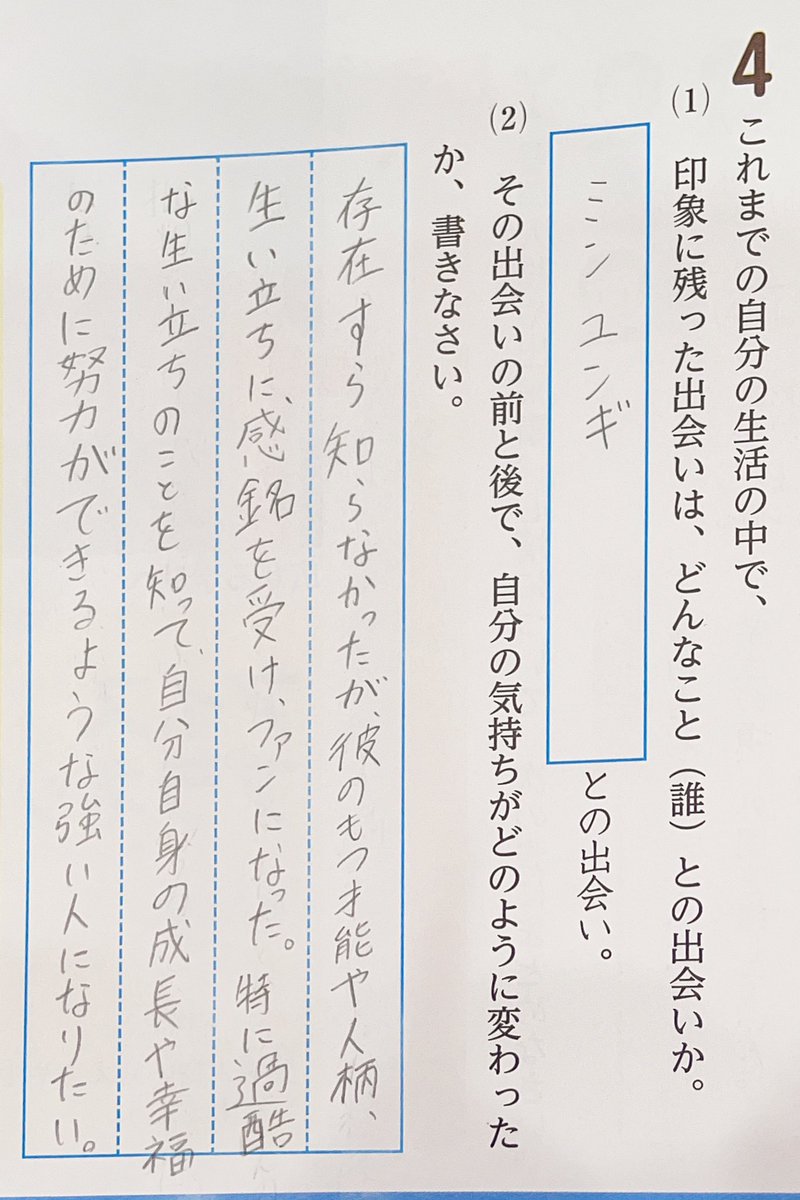 4 これまでの自分の生活の中で、
(1) 印象に残った出会いは、どんなこと（誰）との出会いか。
ミン ユンギ との出会い。
(2) その出会いの前と後で、自分の気持ちがどのように変わった
か、書きなさい。
存在すら知らなかったが、彼のもつ才能や人柄、
生い立ちに、感銘を受け、ファンになった。特に過酷
な生い立ちのことを知って、自分自身の成長や幸福
のために努力ができるような強い人になりたい。